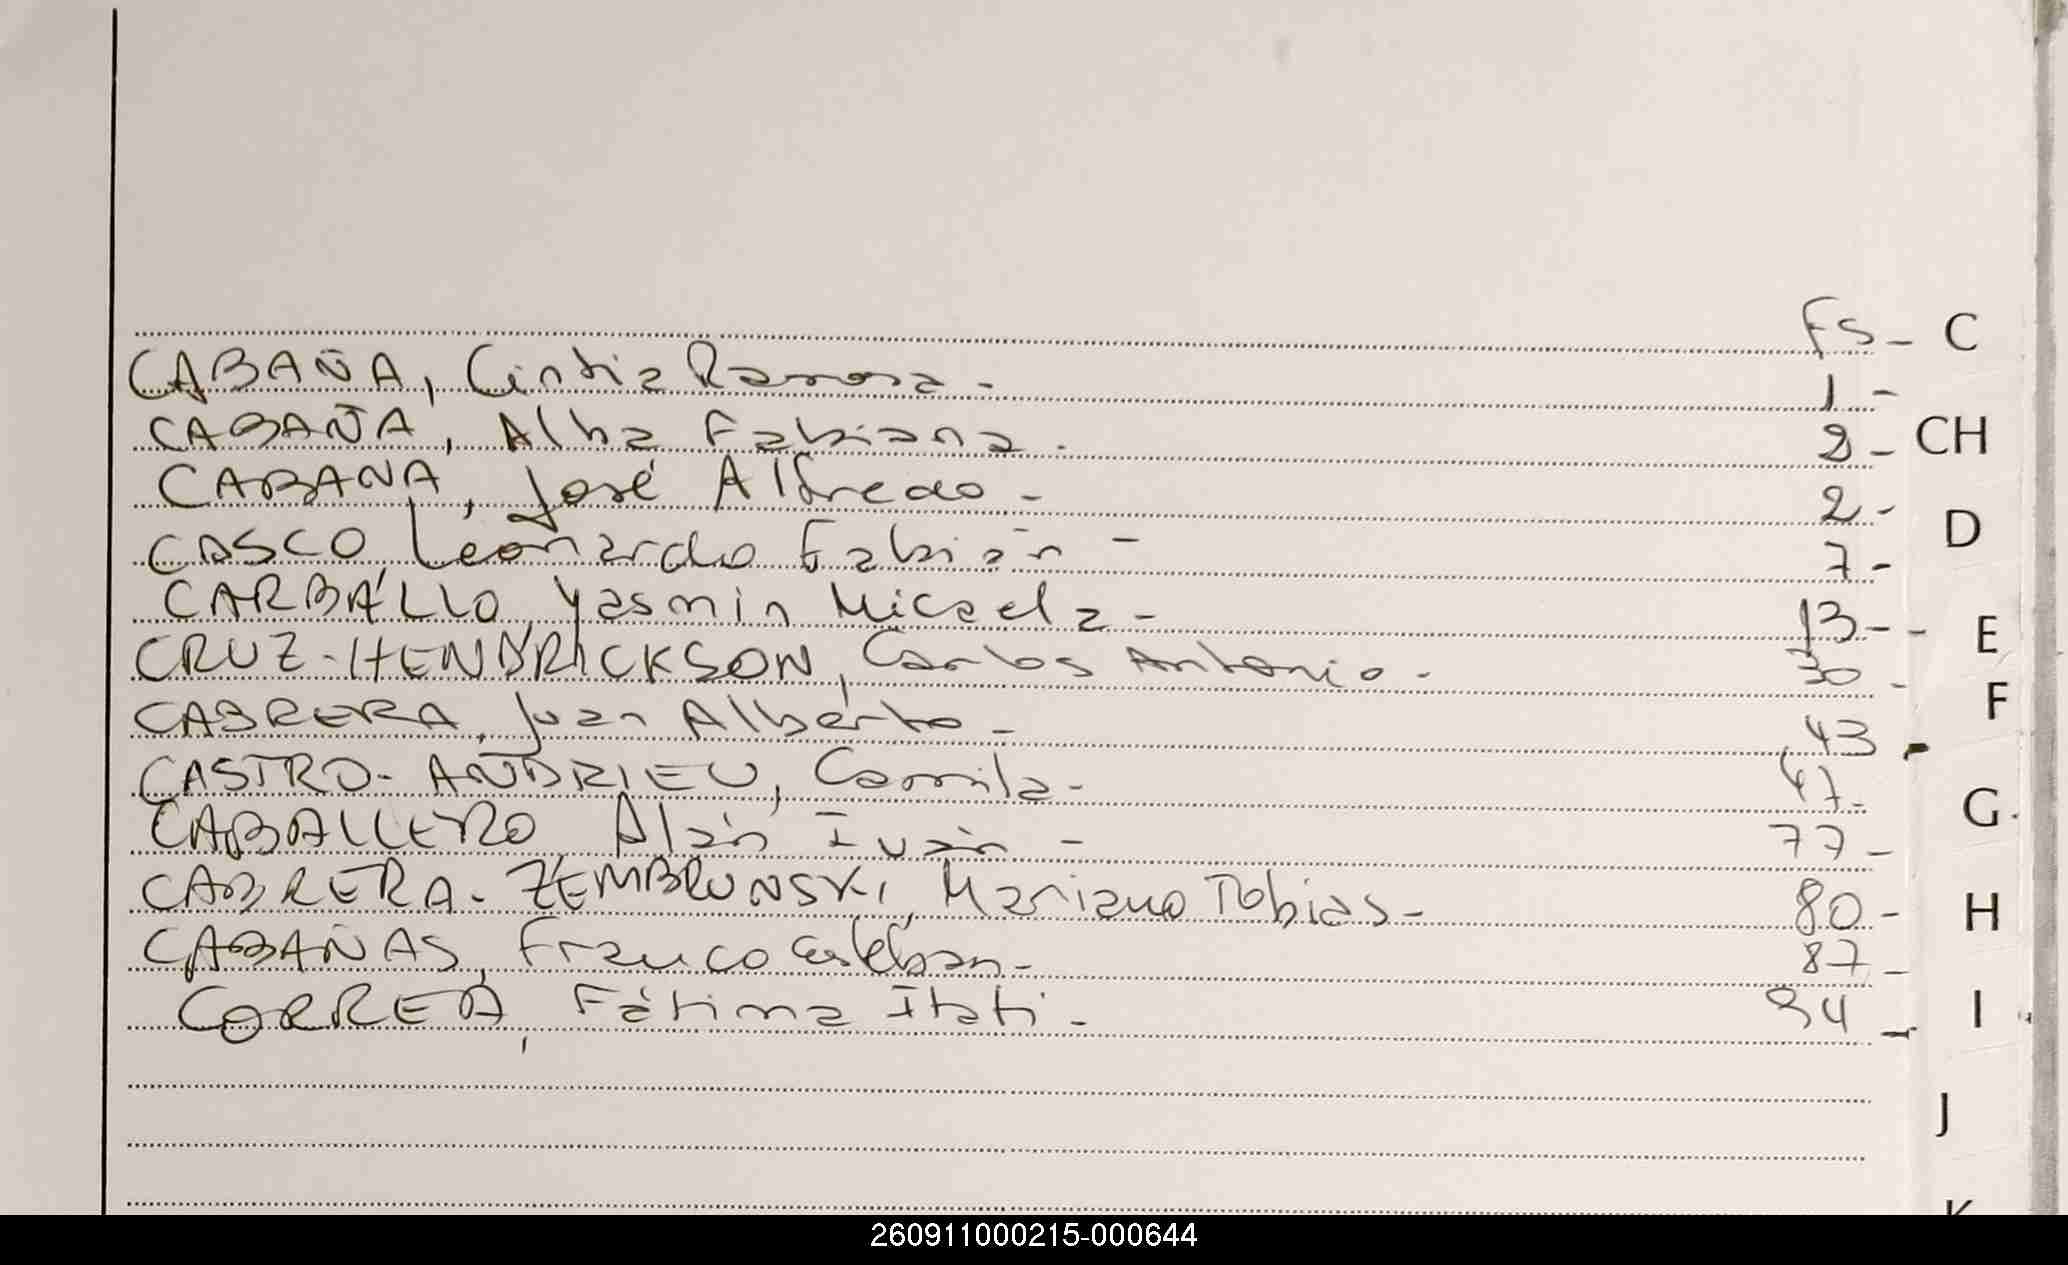 Fs - C
CABAÑA, Cintia Ramona - 1 -
CABAÑA, Alba Fabiana. 2 - CH
CABAÑA, José Alfredo - 2 -
D
CASCO Leonardo Fabián - 7 -
CARBALLO, Yasmin Micaela - 13 - -
E
CRUZ-HENDRICKSON, Carlos Antonio. 30 -
F
CABRERA, Juan Alberto - 43 -
CASTRO-ANDRIEU, Camila - 47 -
G
CABALLERO Alan Iván - 77 -
CABRERA-ZEMBRUNSKI, Mariano Tobias - 80 - H
CABAÑAS, Franco Esteban - 87 -
CORREA, Fátima Itati - 94 - I
J
K
260911000215-000644